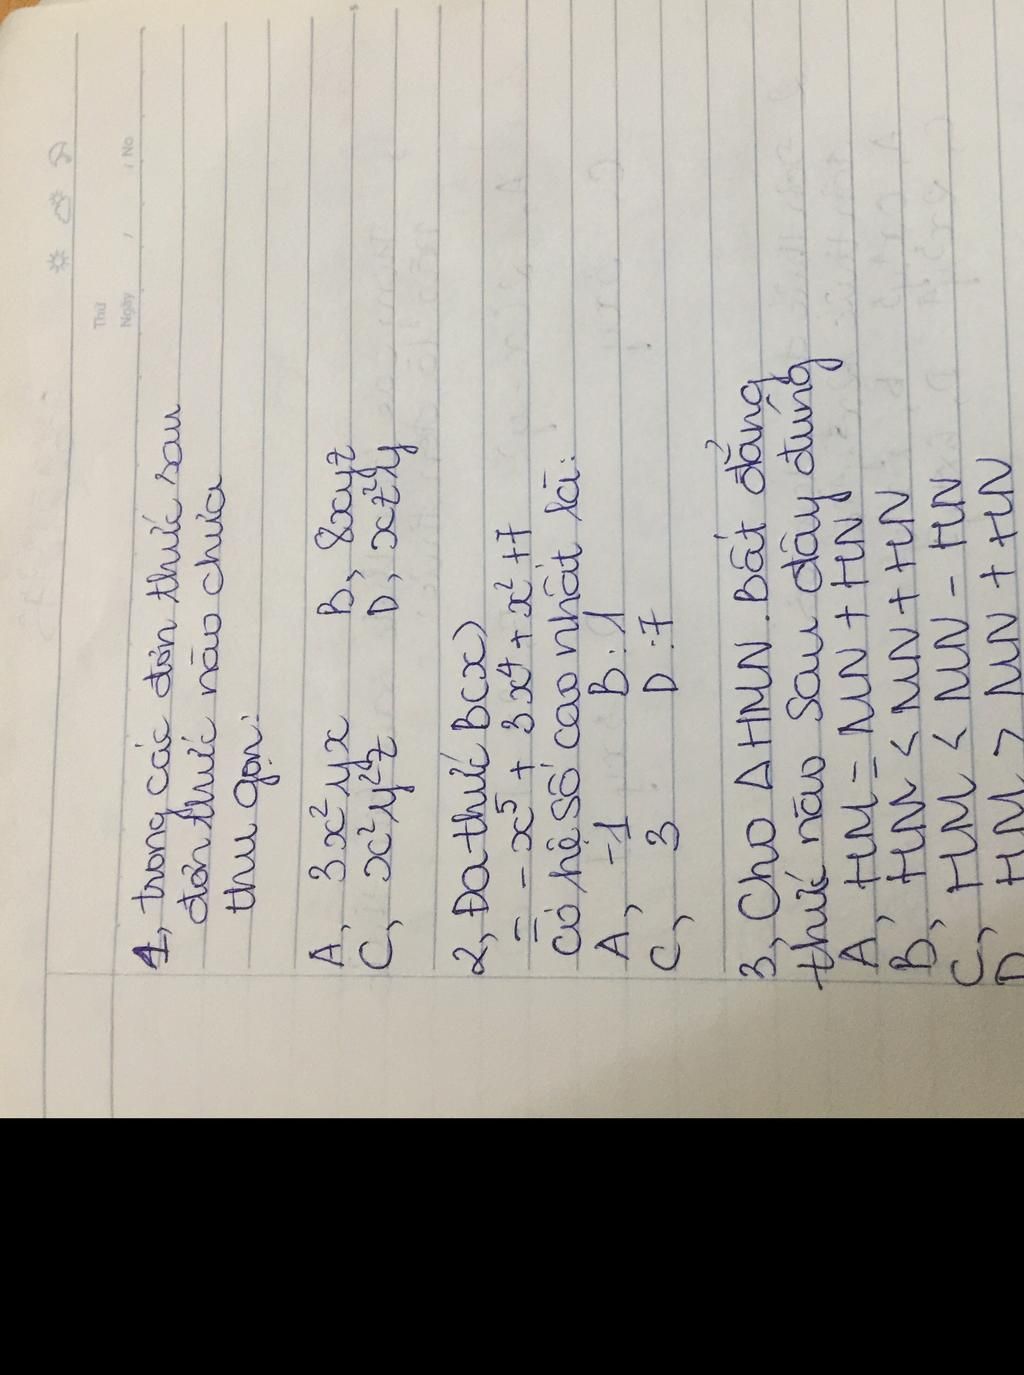 Thứ
Ngày / / No
1, trong các đơn thức sau
đơn thức nào chưa
thu gọn:
A, 3x²yx B, 8xyz
C, x²y²z D, xz²y
2, Đa thức B(x)
= -x⁵ + 3x⁴ + x² + 7
Có hệ số cao nhất là:
A, -1 B: 1
C, 3 D: 7
3, Cho Δ HMN. Bất đẳng
thức nào sau đây đúng
A, HM = MN + HN
B, HM < MN + HN
C, HM < MN - HN
D, HM > MN + HN